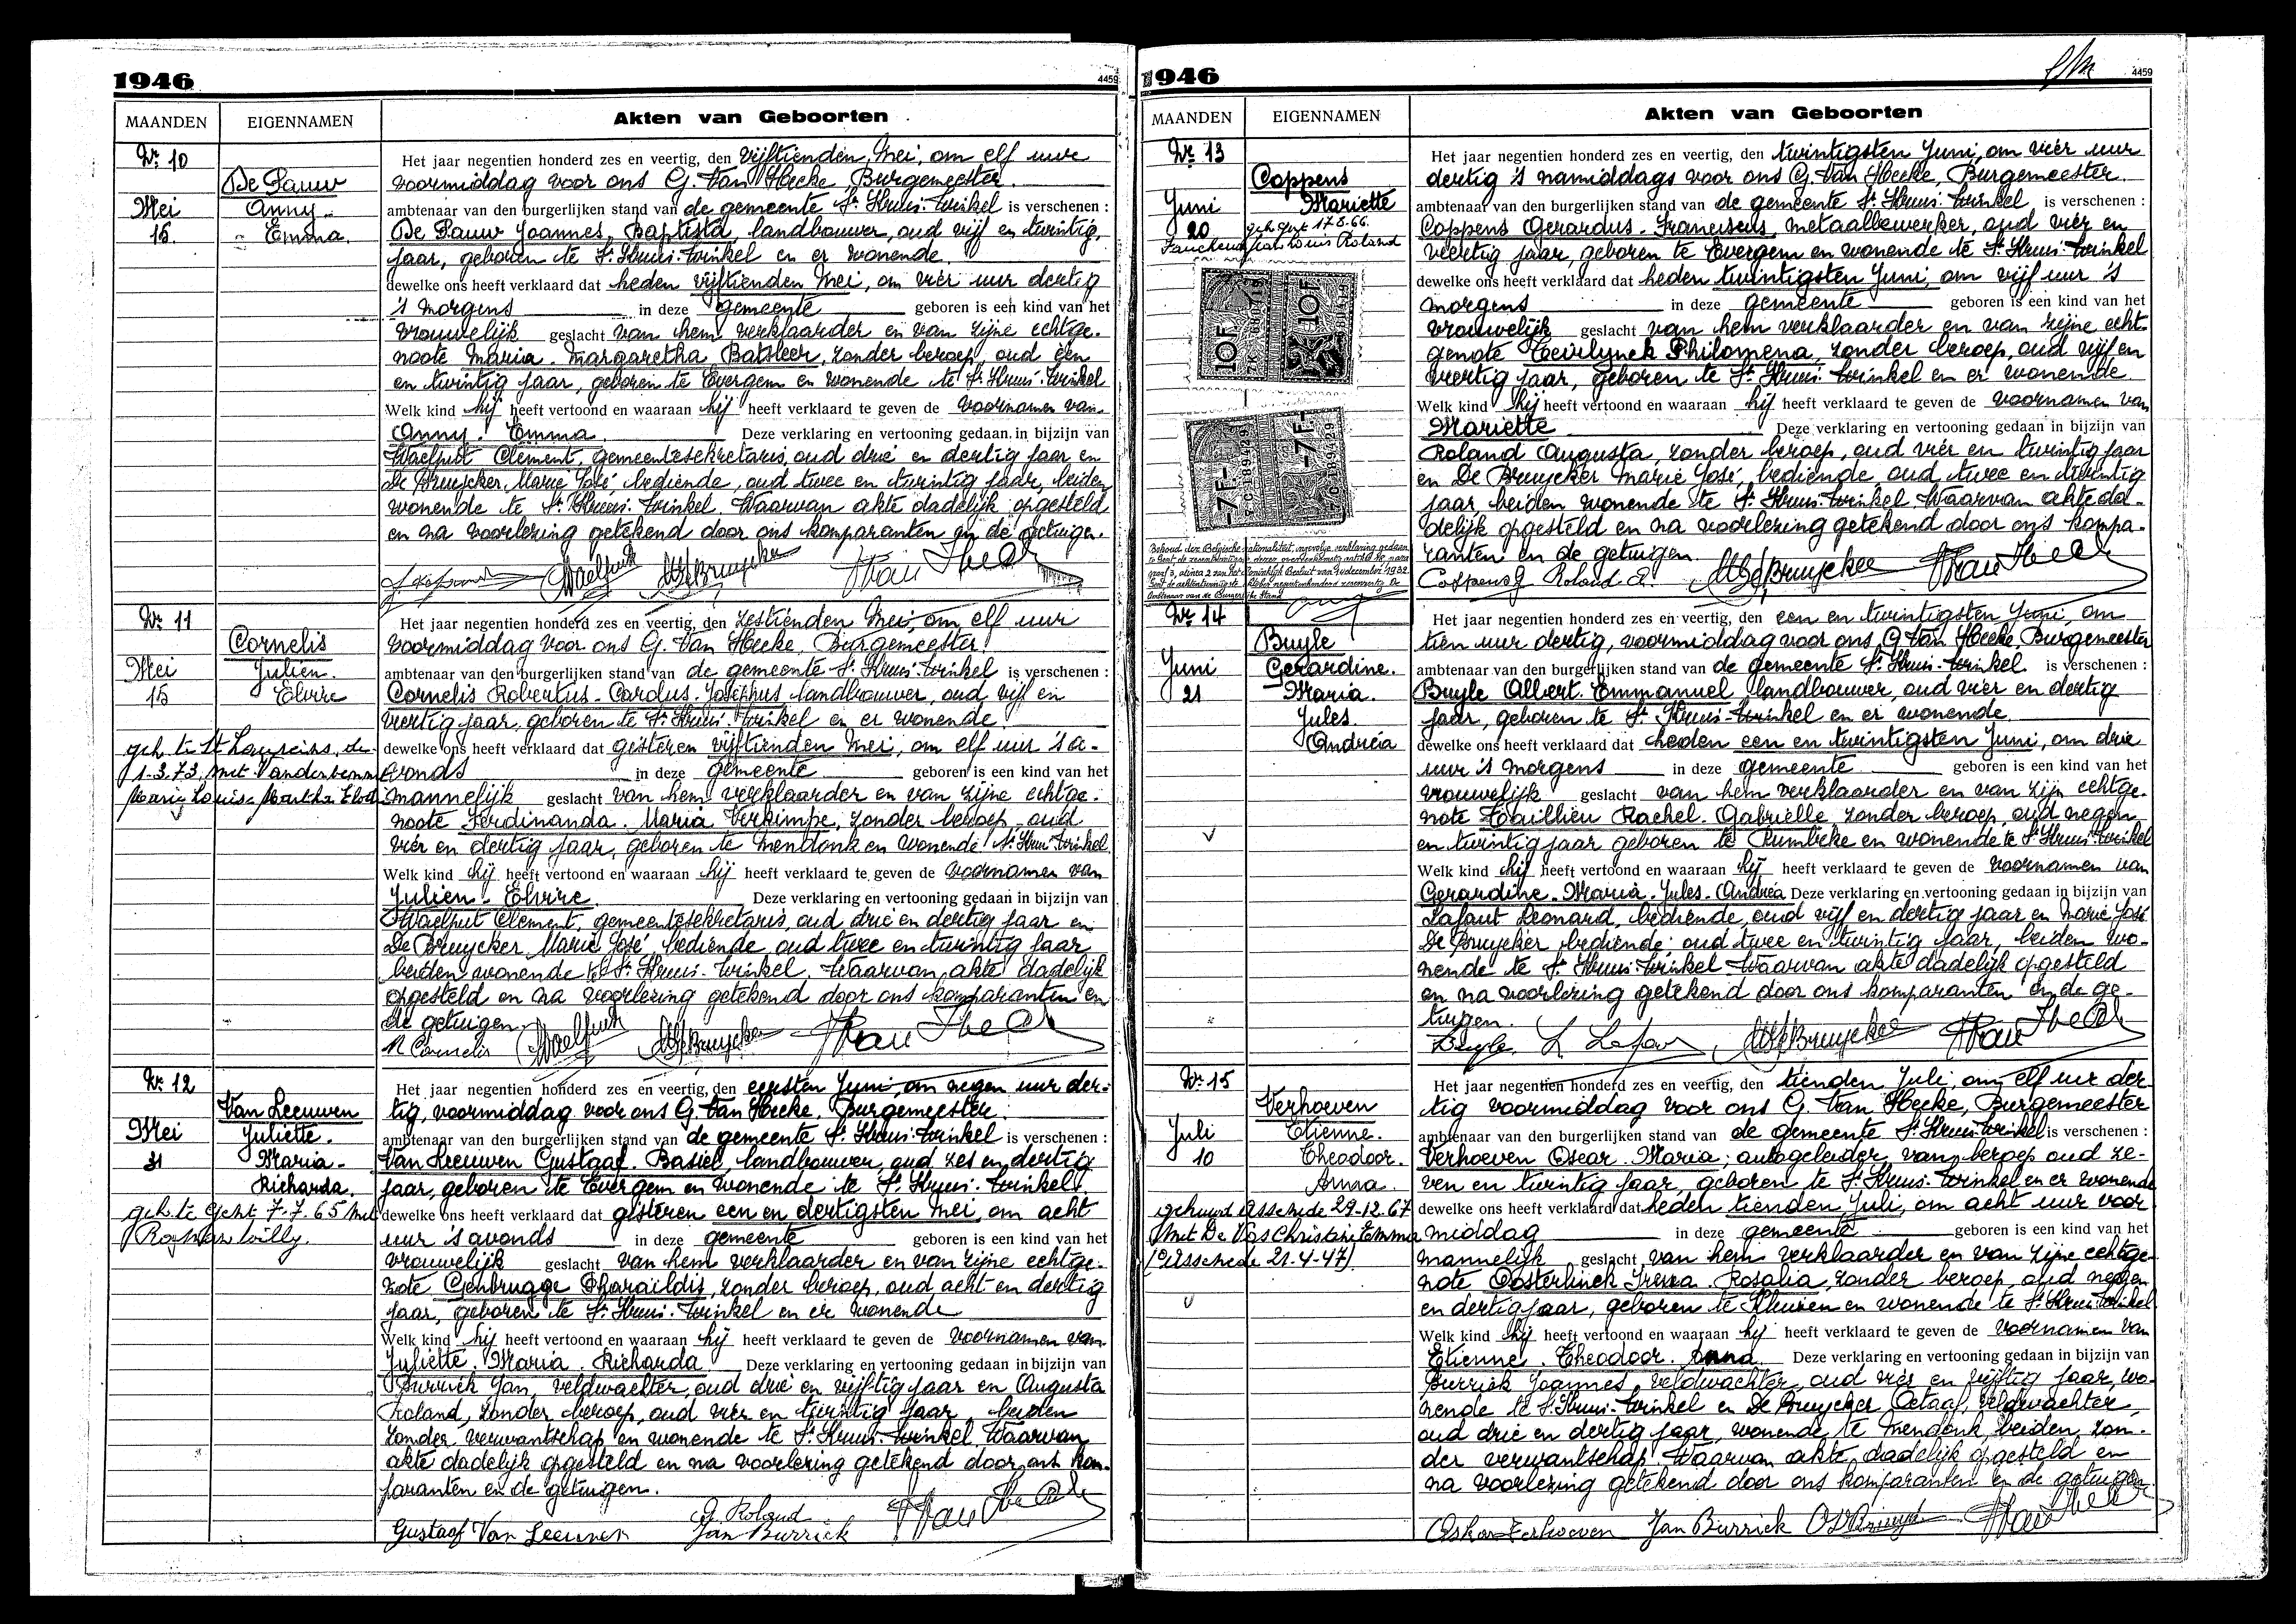 1946
4459
MAANDEN
EIGENNAMEN
Akten van Geboorten
Nr. 10
De Pauw
Mei
Anny -
15.
- Emma.
Het jaar negentien honderd zes en veertig, den vijftienden Mei, om elf ure
voormiddag voor ons G. Van Hecke Burgemeester.
ambtenaar van den burgerlijken stand van de gemeente St Kruis-Winkel is verschenen :
De Pauw Joannes, Baptista, landbouwer, oud vijf en twintig
jaar, geboren te St Kruis-Winkel en er wonende.
dewelke ons heeft verklaard dat heden vijftienden Mei, om vier uur dertig
's morgens in deze gemeente geboren is een kind van het
vrouwelijk geslacht van hem verklaarder en van zijne echtge-
noote Maria Margaretha Batsleer, zonder beroep, oud een
en twintig jaar, geboren te Evergem en wonende te St Kruis-Winkel
Welk kind hij heeft vertoond en waaraan hij heeft verklaard te geven de voornamen van
Anny - Emma. Deze verklaring en vertooning gedaan in bijzijn van
Waelput Clement, gemeentesekretaris, oud drie en dertig jaar en
De Bruycker Marie José bediende, oud twee en twintig jaar, beiden
wonende te St Kruis-Winkel. Waarvan akte dadelijk opgesteld
en na voorlezing getekend door ons komparanten en de getuigen.
Nr. 11
Cornelis
Mei
Julien.
15
Elvire
geh. te St Laureins, de
1-3.73, met Vanderbemm
Maria Louisa Martha Elod
Het jaar negentien honderd zes en veertig, den zestienden Mei, om elf uur
voormiddag voor ons G. Van Hecke, Burgemeester
ambtenaar van den burgerlijken stand van de gemeente St Kruis-Winkel is verschenen :
Cornelis Robertus-Carolus-Josephus landbouwer, oud vijf en
veertig jaar, geboren te St Kruis-Winkel en er wonende
dewelke ons heeft verklaard dat gisteren vijftienden Mei, om elf uur 's a-
vonds in deze gemeente geboren is een kind van het
mannelijk geslacht van hem verklaarder en van zijne echtge-
noote Ferdinanda Maria Verkimpe, zonder beroep - oud
vier en dertig jaar, geboren te Mendonk en wonende St Kruis-Winkel
Welk kind hij heeft vertoond en waaraan hij heeft verklaard te geven de voornamen van
Julien - Elvire Deze verklaring en vertooning gedaan in bijzijn van
Waelput Clement, gemeentesekretaris, oud drie en dertig jaar en
De Bruycker Marie José, bediende oud twee en twintig jaar
beiden wonende te St Kruis-Winkel. Waarvan akte dadelijk
opgesteld en na voorlezing getekend door ons komparanten en
de getuigen.
R Cornelis
Nr. 12
Van Leeuwen
Mei
Juliette.
31
Maria -
Richarda.
geh. te Gent 7-7-65 met
Willy.
Het jaar negentien honderd zes en veertig, den eersten Juni om negen uur der-
tig, voormiddag voor ons G. Van Hecke. Burgemeester.
ambtenaar van den burgerlijken stand van de gemeente St Kruis-Winkel is verschenen :
Van Leeuwen Gustaaf. Basiel, landbouwer, oud zes en dertig
jaar, geboren te Evergem en wonende te St Kruis-Winkel.
dewelke ons heeft verklaard dat gisteren een en dertigsten Mei, om acht
uur 's avonds in deze gemeente geboren is een kind van het
vrouwelijk geslacht van hem verklaarder en van zijne echtge-
note Genbrugge Pharaïldis, zonder beroep, oud acht en dertig
jaar, geboren te St Kruis-Winkel en er wonende
Welk kind hij heeft vertoond en waaraan hij heeft verklaard te geven de voornamen van
Juliette. Maria. Richarda Deze verklaring en vertooning gedaan in bijzijn van
Burrick Jan, veldwachter, oud drie en vijftig jaar en Augusta
Roland, zonder beroep, oud vier en twintig jaar, beiden
zonder verwantschap en wonende te St Kruis-Winkel. Waarvan
akte dadelijk opgesteld en na voorlezing getekend door ons kom-
paranten en de getuigen.
Gustaaf Van Leeuwen
A. Roland
Jan Burrick
1946
4459
MAANDEN
EIGENNAMEN
Akten van Geboorten
Nr 13
Coppens
Juni
Mariette
20
geh. Gent 17.8.66.
Jan Louis Roland
10F
10F
-7F-
-7F-
Het jaar negentien honderd zes en veertig, den twintigsten Juni, om vier uur
dertig 's namiddags voor ons G. Van Hecke, Burgemeester.
ambtenaar van den burgerlijken stand van de gemeente St Kruis-Winkel is verschenen :
Coppens Gerardus-Franciscus, metaalbewerker, oud vier en
veertig jaar, geboren te Evergem en wonende te St Kruis-Winkel
dewelke ons heeft verklaard dat heden twintigsten Juni, om vijf uur 's
morgens in deze gemeente geboren is een kind van het
vrouwelijk geslacht van hem verklaarder en van zijne echt-
genote Heirlynck Philomena, zonder beroep, oud vijf en
veertig jaar, geboren te St Kruis-Winkel en er wonende
Welk kind hij heeft vertoond en waaraan hij heeft verklaard te geven de voornamen van
Mariette Deze verklaring en vertooning gedaan in bijzijn van
Roland Augusta, zonder beroep, oud vier en twintig jaar
en De Bruycker Marie José, bediende, oud twee en twintig
jaar beiden wonende te St Kruis-Winkel Waarvan akte da-
delijk opgesteld en na voorlezing getekend door ons kompa-
ranten en de getuigen.
Coppens G Roland A.
Nr 14
Buyle
Juni
Gerardine.
21
Maria.
Jules.
Andréa
Het jaar negentien honderd zes en veertig, den een en twintigsten Juni, om
tien uur dertig, voormiddag voor ons G Van Hecke Burgemeester
ambtenaar van den burgerlijken stand van de gemeente St Kruis-Winkel is verschenen :
Buyle Albert. Emmanuel landbouwer, oud vier en dertig
jaar, geboren te St Kruis-Winkel en er wonende
dewelke ons heeft verklaard dat heden een en twintigsten Juni, om drie
uur 's morgens in deze gemeente geboren is een kind van het
vrouwelijk geslacht van hem verklaarder en van zijn echtge-
note Taillieu Rachel. Gabrielle, zonder beroep, oud negen
en twintig jaar geboren te Rumbeke en wonende te St Kruis-Winkel
Welk kind hij heeft vertoond en waaraan hij heeft verklaard te geven de voornamen van
Gerardine-Maria-Jules-Andréa Deze verklaring en vertooning gedaan in bijzijn van
Lafaut Leonard, bediende, oud vijf en dertig jaar en Marie José
De Bruycker bediende oud twee en twintig jaar, beiden wo-
nende te St Kruis-Winkel Waarvan akte dadelijk opgesteld
en na voorlezing getekend door ons komparanten en de ge-
tuigen.
Buyle.
Nr. 15
Verhoeven
Juli
Etienne.
10
Theodoor.
Anna.
gehuwd Assenede 29-12-67
met De Vos Christine Emma
(°Assenede 21-4-47)
Het jaar negentien honderd zes en veertig, den tienden Juli, om elf uur der
tig voormiddag voor ons G. Van Hecke, Burgemeester
ambtenaar van den burgerlijken stand van de gemeente St Kruis-Winkel is verschenen :
Verhoeven Oscar. Maria, autogeleider van beroep oud ze-
ven en twintig jaar, geboren te St Kruis-Winkel en er wonende
dewelke ons heeft verklaard dat heden tienden Juli, om acht uur voor
middag in deze gemeente geboren is een kind van het
mannelijk geslacht van hem verklaarder en van zijne echtge-
note Oosterlinck Irena. Rosalia, zonder beroep, oud negen
en dertig jaar, geboren te Kluizen en wonende te St Kruis-Winkel
Welk kind hij heeft vertoond en waaraan hij heeft verklaard te geven de voornamen van
Etienne. Theodoor. Anna. Deze verklaring en vertooning gedaan in bijzijn van
Burrick Joannes, veldwachter, oud vier en vijftig jaar, wo-
nende te St Kruis-Winkel en De Bruycker Octaaf, veldwachter,
oud drie en dertig jaar, wonende te Mendonk, beiden zon-
der verwantschap Waarvan akte dadelijk opgesteld en
na voorlezing getekend door ons komparanten en de getuigen.
Oskar Verhoeven Jan Burrick